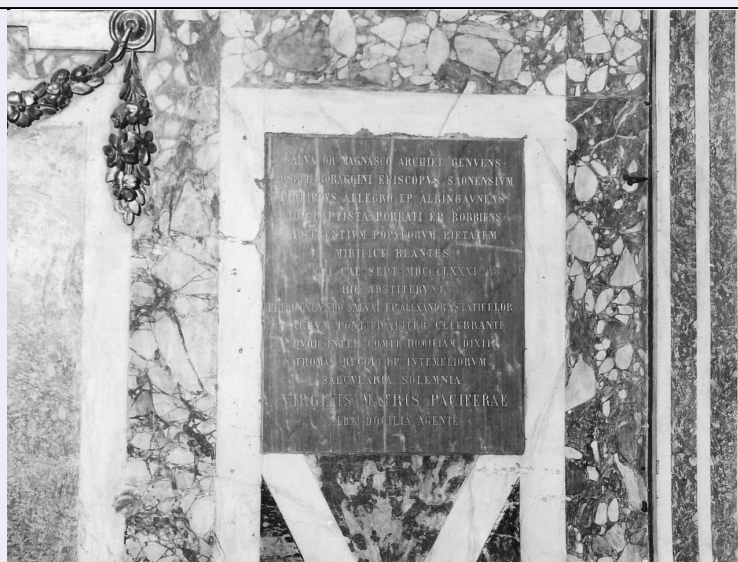 SALVATOR MAGNASCO ARCHIEP GENVENS
BORAGGINI EPISCOPVS SAONENSIVM
ALLEGRO EP ALBINGAVNENS
BAPTISTA PORRATI EP BOBBIENS
POPVLORVM PIETATEM
MIRIFICE BEANTES
CAL SEPT MDCCCLXXXI
HIC ADSTITERVNT
SALVAI EP ALEXANDR STATIELLOR
PONTIFICALITER CELEBRANTE
QVOD INTER COMTI HOMILIAM DIXIT
THOMAS REGGIO EP INTEMELIORVM
SAECVLARIA SOLEMNIA
VIRGINIS MATRIS PACIFERAE
ALBA DOCILIA AGENTE